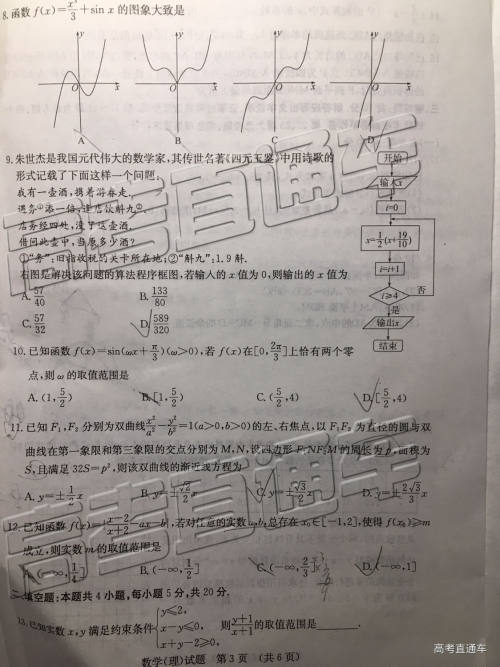 8.函数 f(x)=x³/3+sin x 的图象大致是
y y y y
O x O x O x O x
A B C D
9.朱世杰是我国元代伟大的数学家,其传世名著《四元玉鉴》中用诗歌的
形式记载了下面这样一个问题:
我有一壶酒,携着游春走.
遇务①添一倍,逢店饮斛九②.
店务经四处,没了这壶酒.
借问此壶中,当原多少酒?
①“务”:旧指收税的关卡所在地;②“斛九”:1.9 斛.
右图是解决该问题的算法程序框图,若输入的 x 值为 0,则输出的 x 值为
A. 57/40 B. 133/80
C. 57/32 D. 589/320
开始
输入x
i=0
x=1/2(x+19/10)
i=i+1
i≥4
否
是
输出x
结束
10.已知函数 f(x)=sin(ωx+π/3)(ω>0),若 f(x)在[0,2π/3]上恰有两个零
点,则 ω 的取值范围是
A.(1,5/2) B.[1,5/2) C.(5/2,4) D.[5/2,4)
11.已知 F₁,F₂ 分别为双曲线x²/a²−y²/b²=1(a>0,b>0)的左、右焦点,以 F₁F₂ 为直径的圆与双
曲线在第一象限和第三象限的交点分别为 M,N,设四边形 F₁NF₂M 的周长为 p,面积为
S,且满足 32S=p²,则该双曲线的渐近线方程为
B. y=±√2/2 x C. y=±√3/2 x D. y=±2√3/3 x
12.已知函数 f(x)=|x−2/x+2−ax−b|,若对任意的实数 a,b,总存在 x₀∈[−1,2],使得 f(x₀)≥m
成立,则实数 m 的取值范围是
A.(−∞,1/4] B.(−∞,1/2] C.(−∞,2/3] D.(−∞,1]
二、填空题:本题共 4 小题,每小题 5 分,共 20 分.
13.已知实数 x,y 满足约束条件{y≤2, x−y≤0, x+y−2≥0, 则y+1/x+1的取值范围是______.
数学(理)试题 第 3 页 (共 6 页)
高考直通车
高考直通车
高考直通车